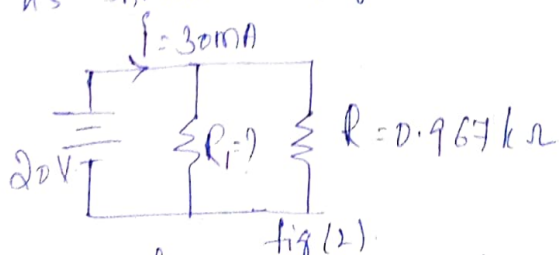 I = 30mA
20V
R₁=?
R = 0.967 kΩ
fig (2).